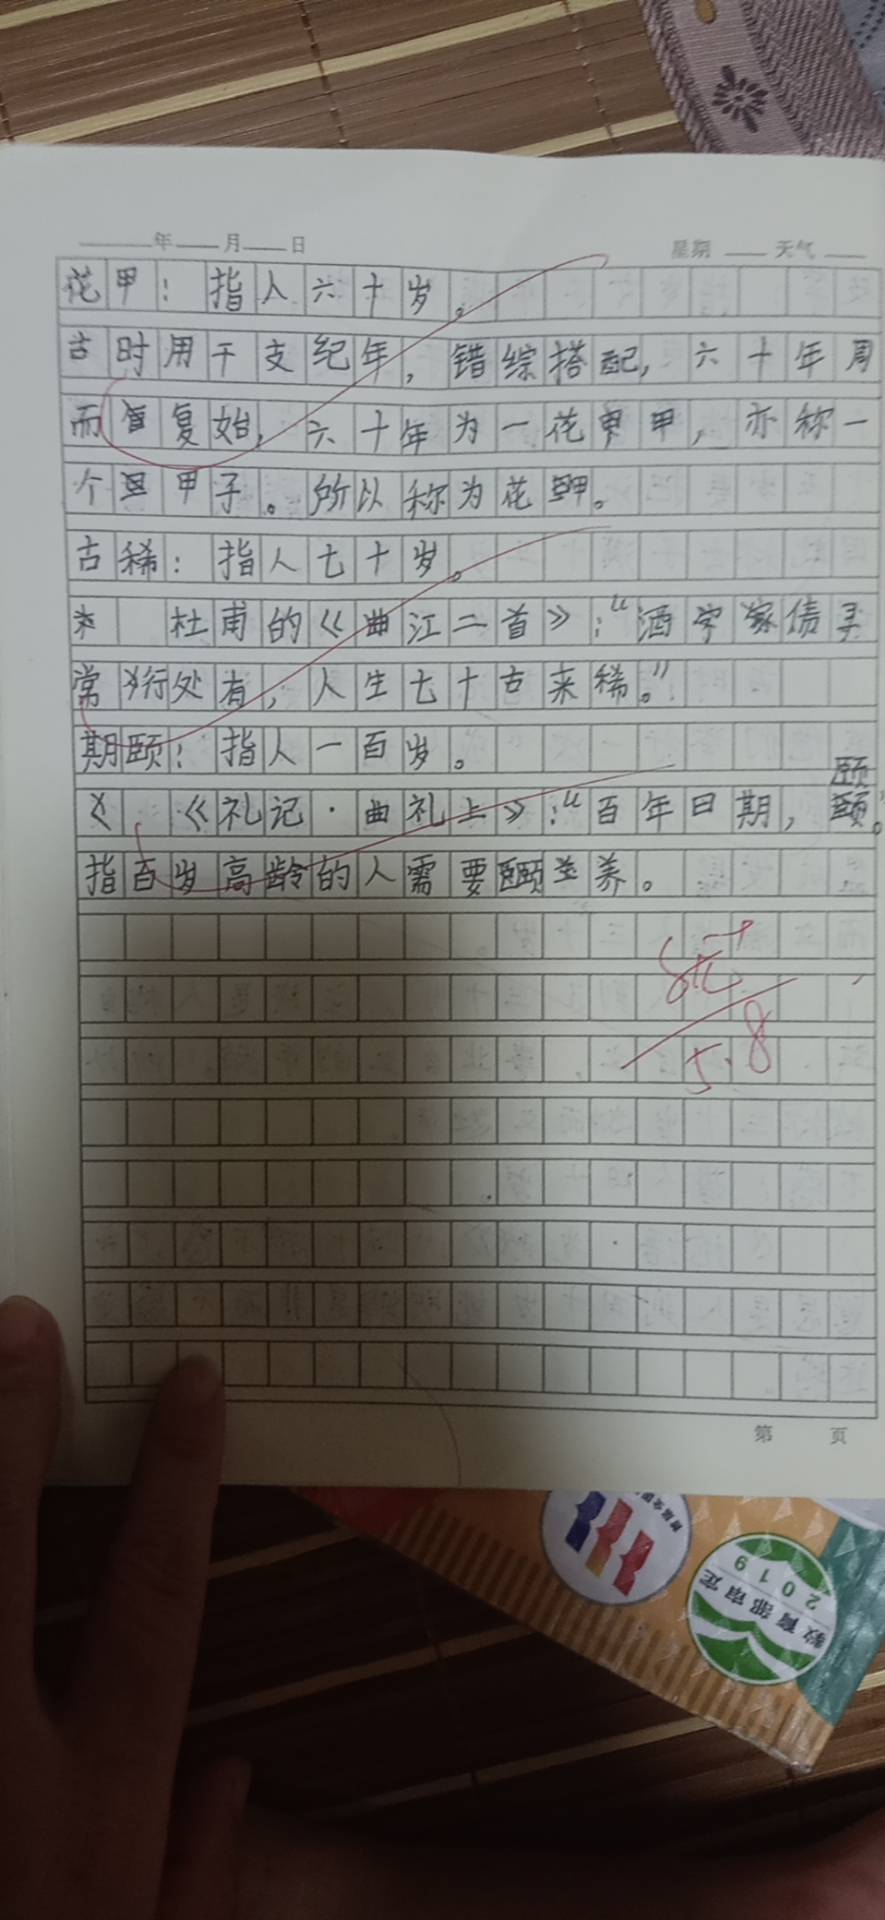 年 月 日 星期 天气
花甲：指人六十岁。
古时用干支纪年，错综搭配，六十年周
而复始，六十年为一花甲，亦称一
个甲子。所以称为花甲。
古稀：指人七十岁。
杜甫的《曲江二首》：“酒家债寻
常行处有，人生七十古来稀。”
期颐：指人一百岁。
颐
《礼记·曲礼上》：“百年日期，颐。”
指百岁高龄的人需要颐养。
5.8
第 页
教育部审定
2019